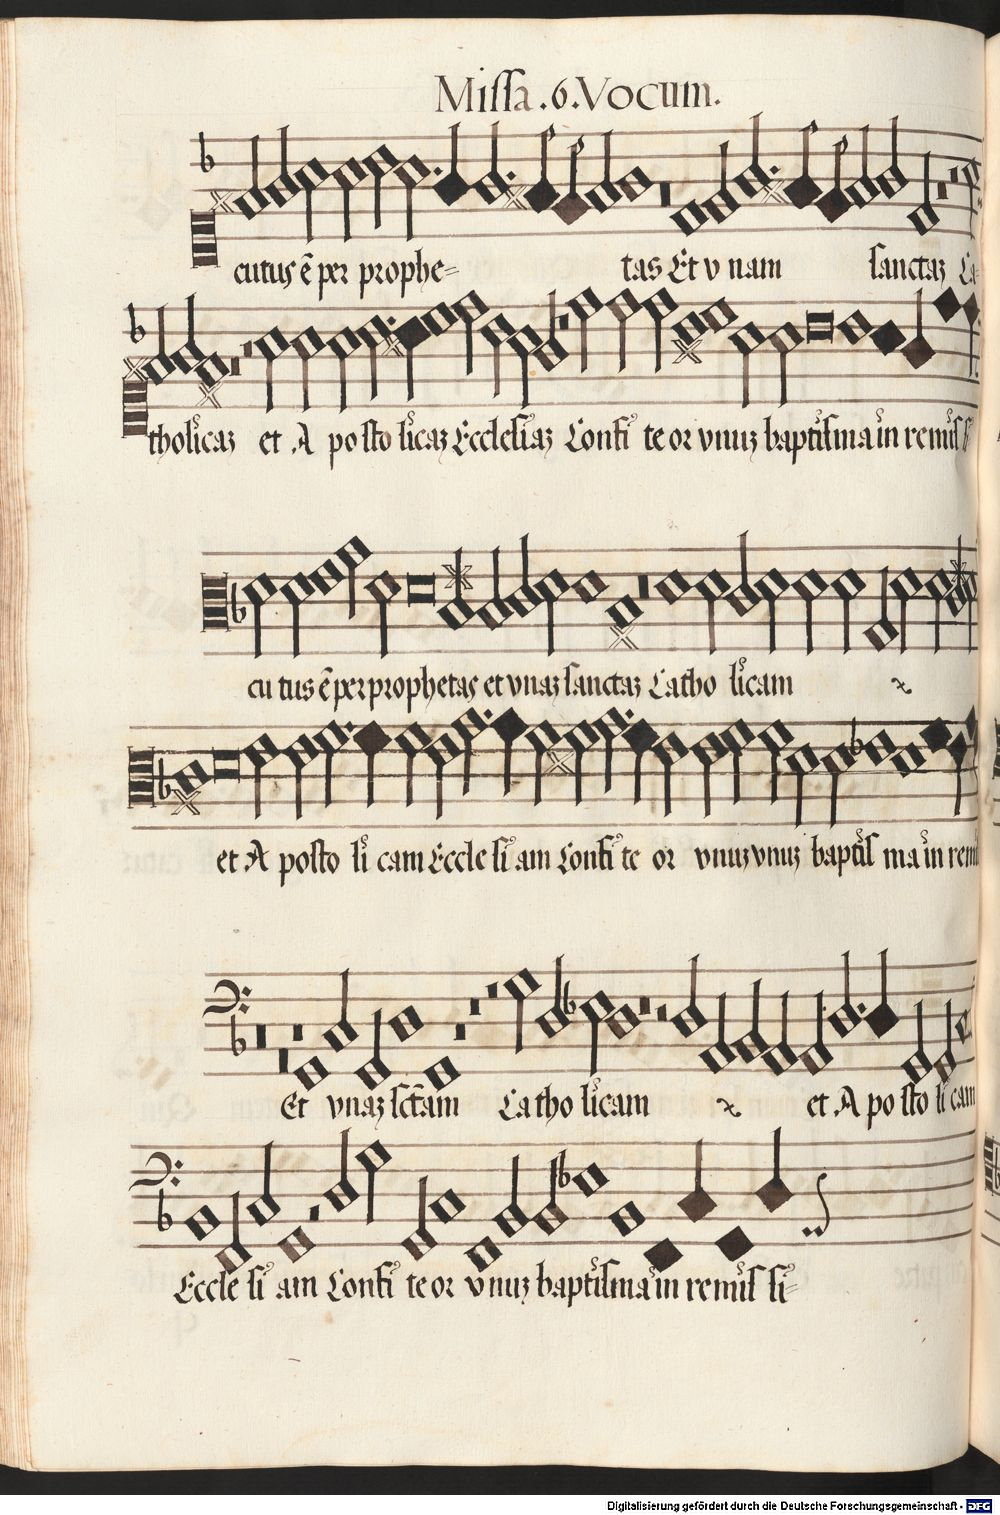 Missa .6. Vocum.
cutus ē per prophe= tas Et v nam sanctaʒ Ca-
tholicaʒ et A po sto licaʒ Ecclesiaʒ Confi te or vnuʒ baptisma in remis si
cu tus ē per prophetas et vnaʒ sanctaʒ Catho licam
et A posto li cam Eccle si am Confi te or vnuʒ vnuʒ baptis ma in remi
Et vnaʒ sctam Ca tho licam et A po sto li cam
Eccle si am Confi te or vnuʒ baptisma in remis si=
Digitalisierung gefördert durch die Deutsche Forschungsgemeinschaft - DFG